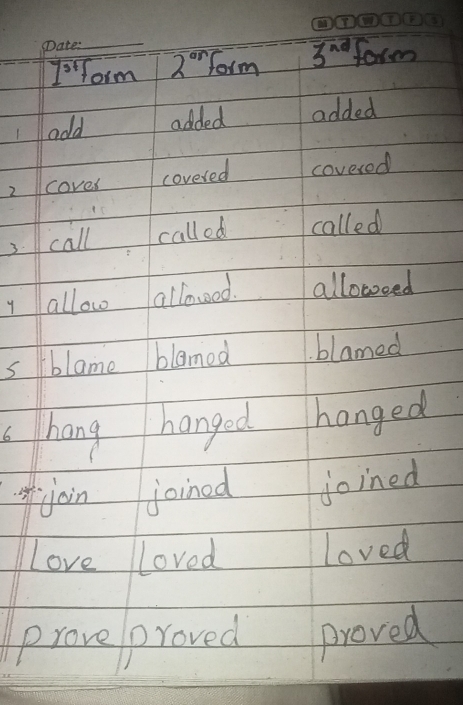 M T W T F S
Date:
1st form 2nd form 3nd form
1 add added added
2 cover covered covered
3. call called called
4 allow allowed. alloweed
5 blame blamed blamed
6 hang hanged hanged
join joined joined
Love Loved Loved
prove proved proved